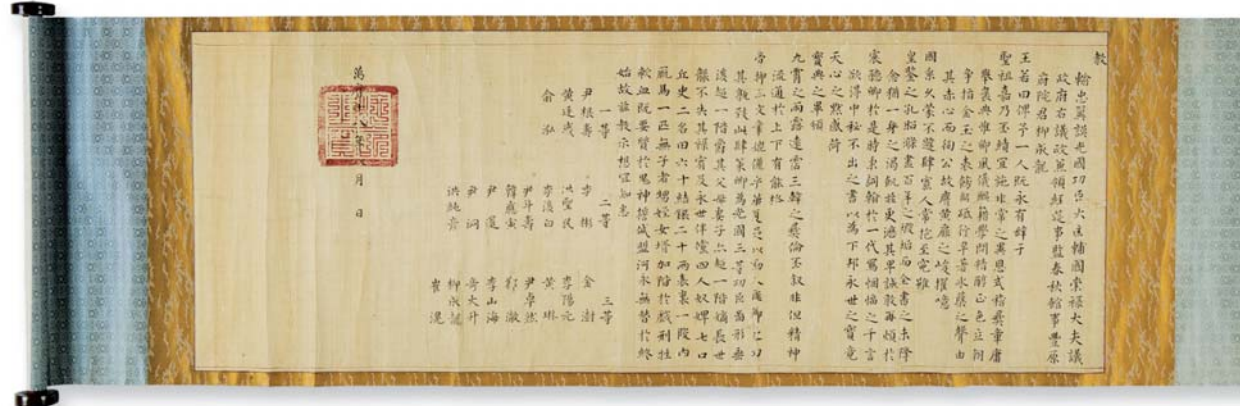 敎
輸忠翼謨光國功臣大匡輔國崇祿大夫議
政府右議政兼領經筵事監春秋館事豐原
府院君柳成龍
王若曰俾予一人旣永有辭于
聖祖嘉乃丕績宜施非常之異恩式稽彝章庸
擧褒典惟卿風儀籍學問精醇正色立朝
爭指金玉之表飭躬砥行早著氷蘗之聲由
其赤心而徇公故膺黃扉之峻擢噫
國系久蒙不韙肆寡人常抱至冤雖
皇鑒之孔昭滌盡百年之瑕垢而全書之未降
食猶一身之渴飢玆更瀝其卑誠敢再煩於
宸聽卿於是時秉詞翰於一代寫悃愊之千言
欲得中秘不出之書以爲下邦永世之寶竟
天心之默感荷
寶典之畢頒
九霄之雨露遠霑三韓之彝倫丕叙非但精神
流通於上下有能格
帝抑亦文章
其孰致此肆策卿爲光國三等功臣圖形垂
後超一階爵其父母妻子亦超一階嫡長世
襲不失其祿宥及永世伴倘四人奴婢七口
丘史二名田六十結銀二十兩表裏一段內
廐馬一匹無子者甥姪女壻加階於戲刑牲
歃血旣要質於鬼神誓盟河永無替於終
始故玆敎示想宜知悉
一等
尹根壽
黃廷彧
兪泓
二等
李
洪聖民
李後白
尹斗壽
韓應寅
尹暹
尹泂
洪純彥
三等
金澍
李陽元
黃琳
尹卓然
鄭澈
李山海
奇大升
柳成龍
崔滉
萬曆十八年 月 日